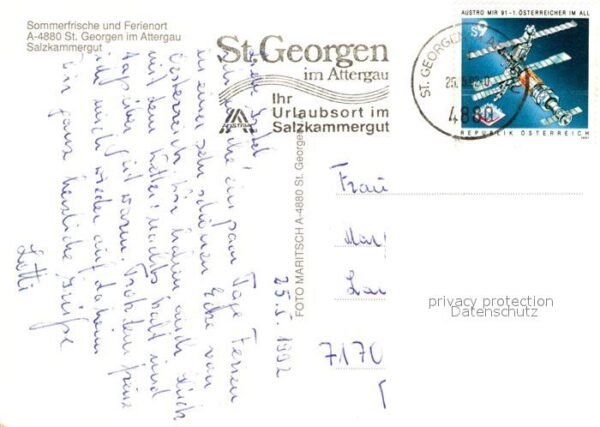 Sommerfrische und Ferienort
A-4880 St. Georgen im Attergau
Salzkammergut
St. Georgen
im Attergau
Ihr
Urlaubsort im
Salzkammergut
AUSTRO MIR 91 - 1. ÖSTERREICHER IM ALL
S9
REPUBLIK ÖSTERREICH
ST. GEORGEN
4880
FOTO MARITSCH A-4880 St. George
25.5.1992
ein paar Tage Ferien
in einer sehr schönen Ecke von
Österreich. Wir haben auch Glück
mit dem Wetter: nachts kalt und
tags über ist warm. Trotzdem freue
ich mich wieder auf daheim
Ein ganz herzliche Grüße
Lotti
Frau
7170
privacy protection
Datenschutz